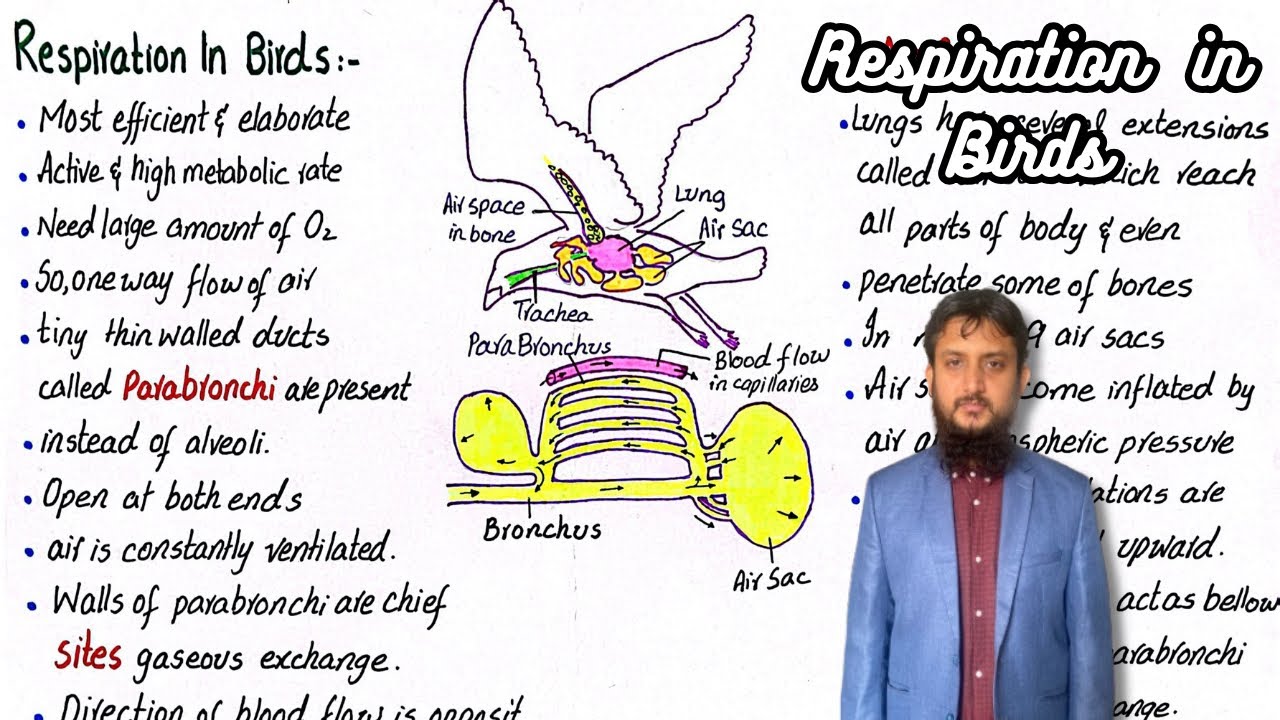 Respiration In Birds:-
• Most efficient & elaborate
• Active & high metabolic rate
• Need large amount of O2
• So, one way flow of air
• tiny thin walled ducts
called Parabronchi are present
• instead of alveoli.
• Open at both ends
• air is constantly ventilated.
• Walls of parabronchi are chief
sites gaseous exchange.
• Direction of blood flow is opposit
Air space
in bone
Lung
Air Sac
Trachea
ParaBronchus
Blood flow
in capillaries
Bronchus
Air Sac
Respiration in
Birds
• Lungs extensions
called reach
all parts of body & even
• penetrate some of bones
• In 9 air sacs
• Air inflated by
air pressure
are
upward.
act as bellow